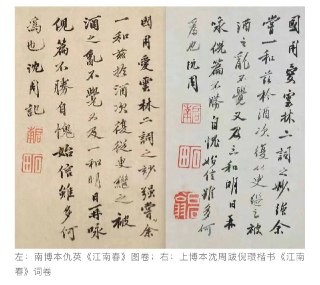 國用愛雲林二詞之妙強余
嘗一和茲於酒次復從臾繼之被
酒之亂不覺又及三和明日再
咏倪篇不勝自愧始信雖多何
為也沈周
國用愛雲林二詞之妙強嘗余
一和茲於酒次復從臾繼之被
酒之亂不覺又及一和明日再咏
倪篇不勝自愧始信雖多何
為也沈周記
左：南博本仇英《江南春》图卷；右：上博本沈周跋倪瓒楷书《江南
春》词卷